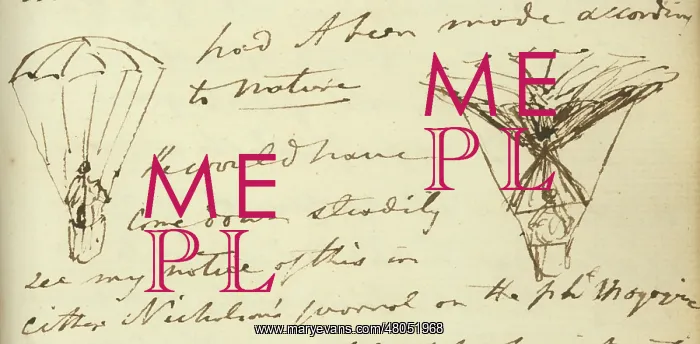 had it been made according
to nature
He would have
come down steadily
see my notice of this in
either Nicholson's journal or the phl Magazine
ME
PL
ME
PL
www.maryevans.com/48051968